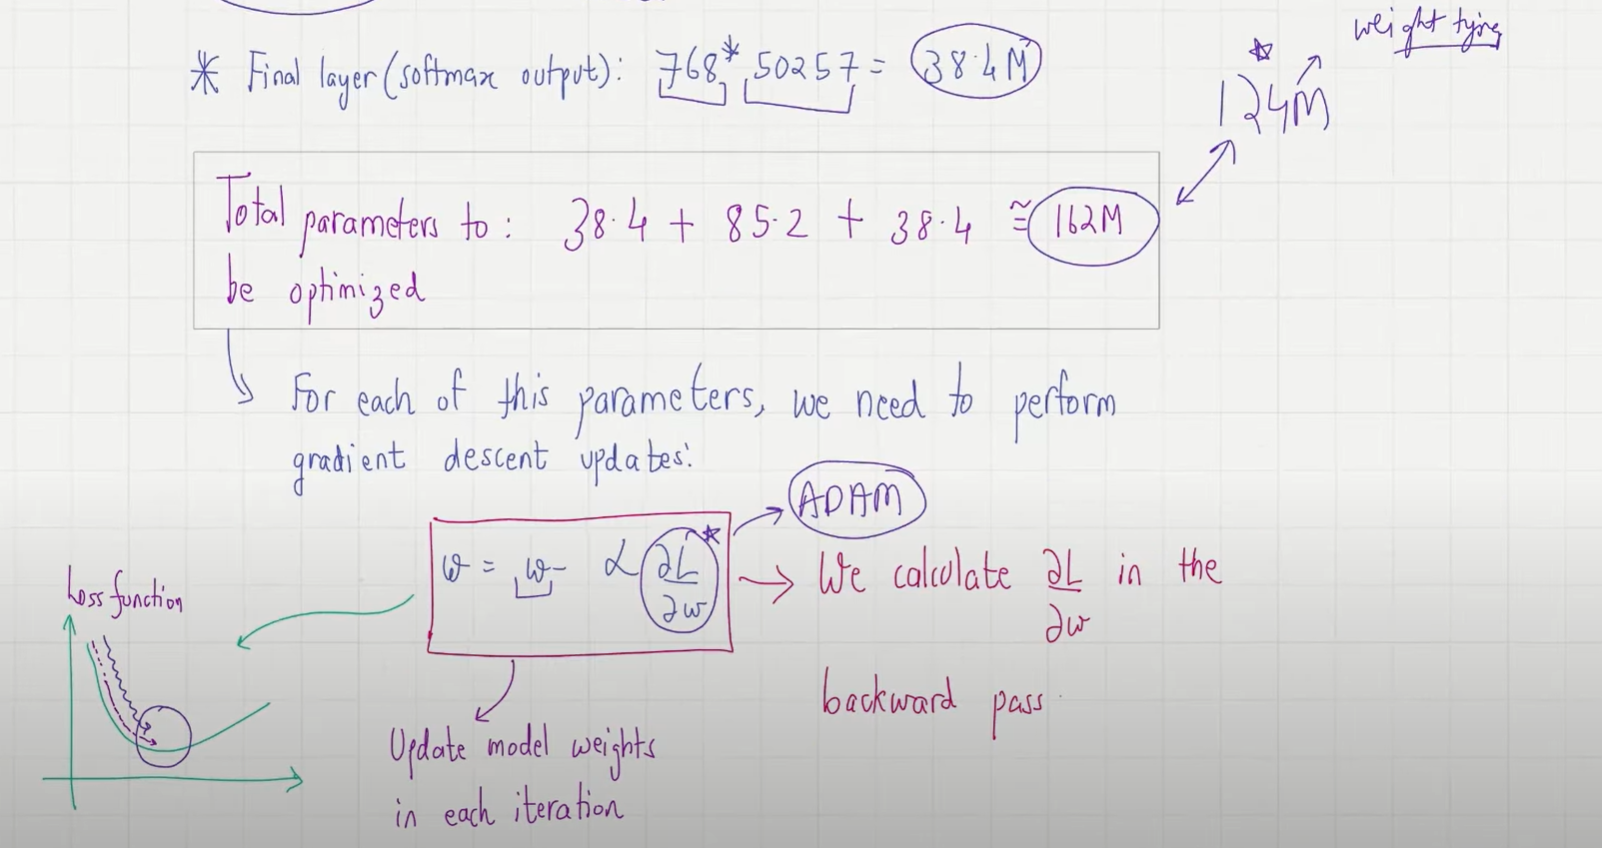 weight tying
* Final layer (softmax output): 768 * 50257 = 38.4M
124M
Total parameters to: 38.4 + 85.2 + 38.4 ≅ 162M
be optimized
For each of this parameters, we need to perform
gradient descent updates:
ADAM
w = w - α ∂L/∂w
We calculate ∂L/∂w in the
backward pass
Loss function
Update model weights
in each iteration